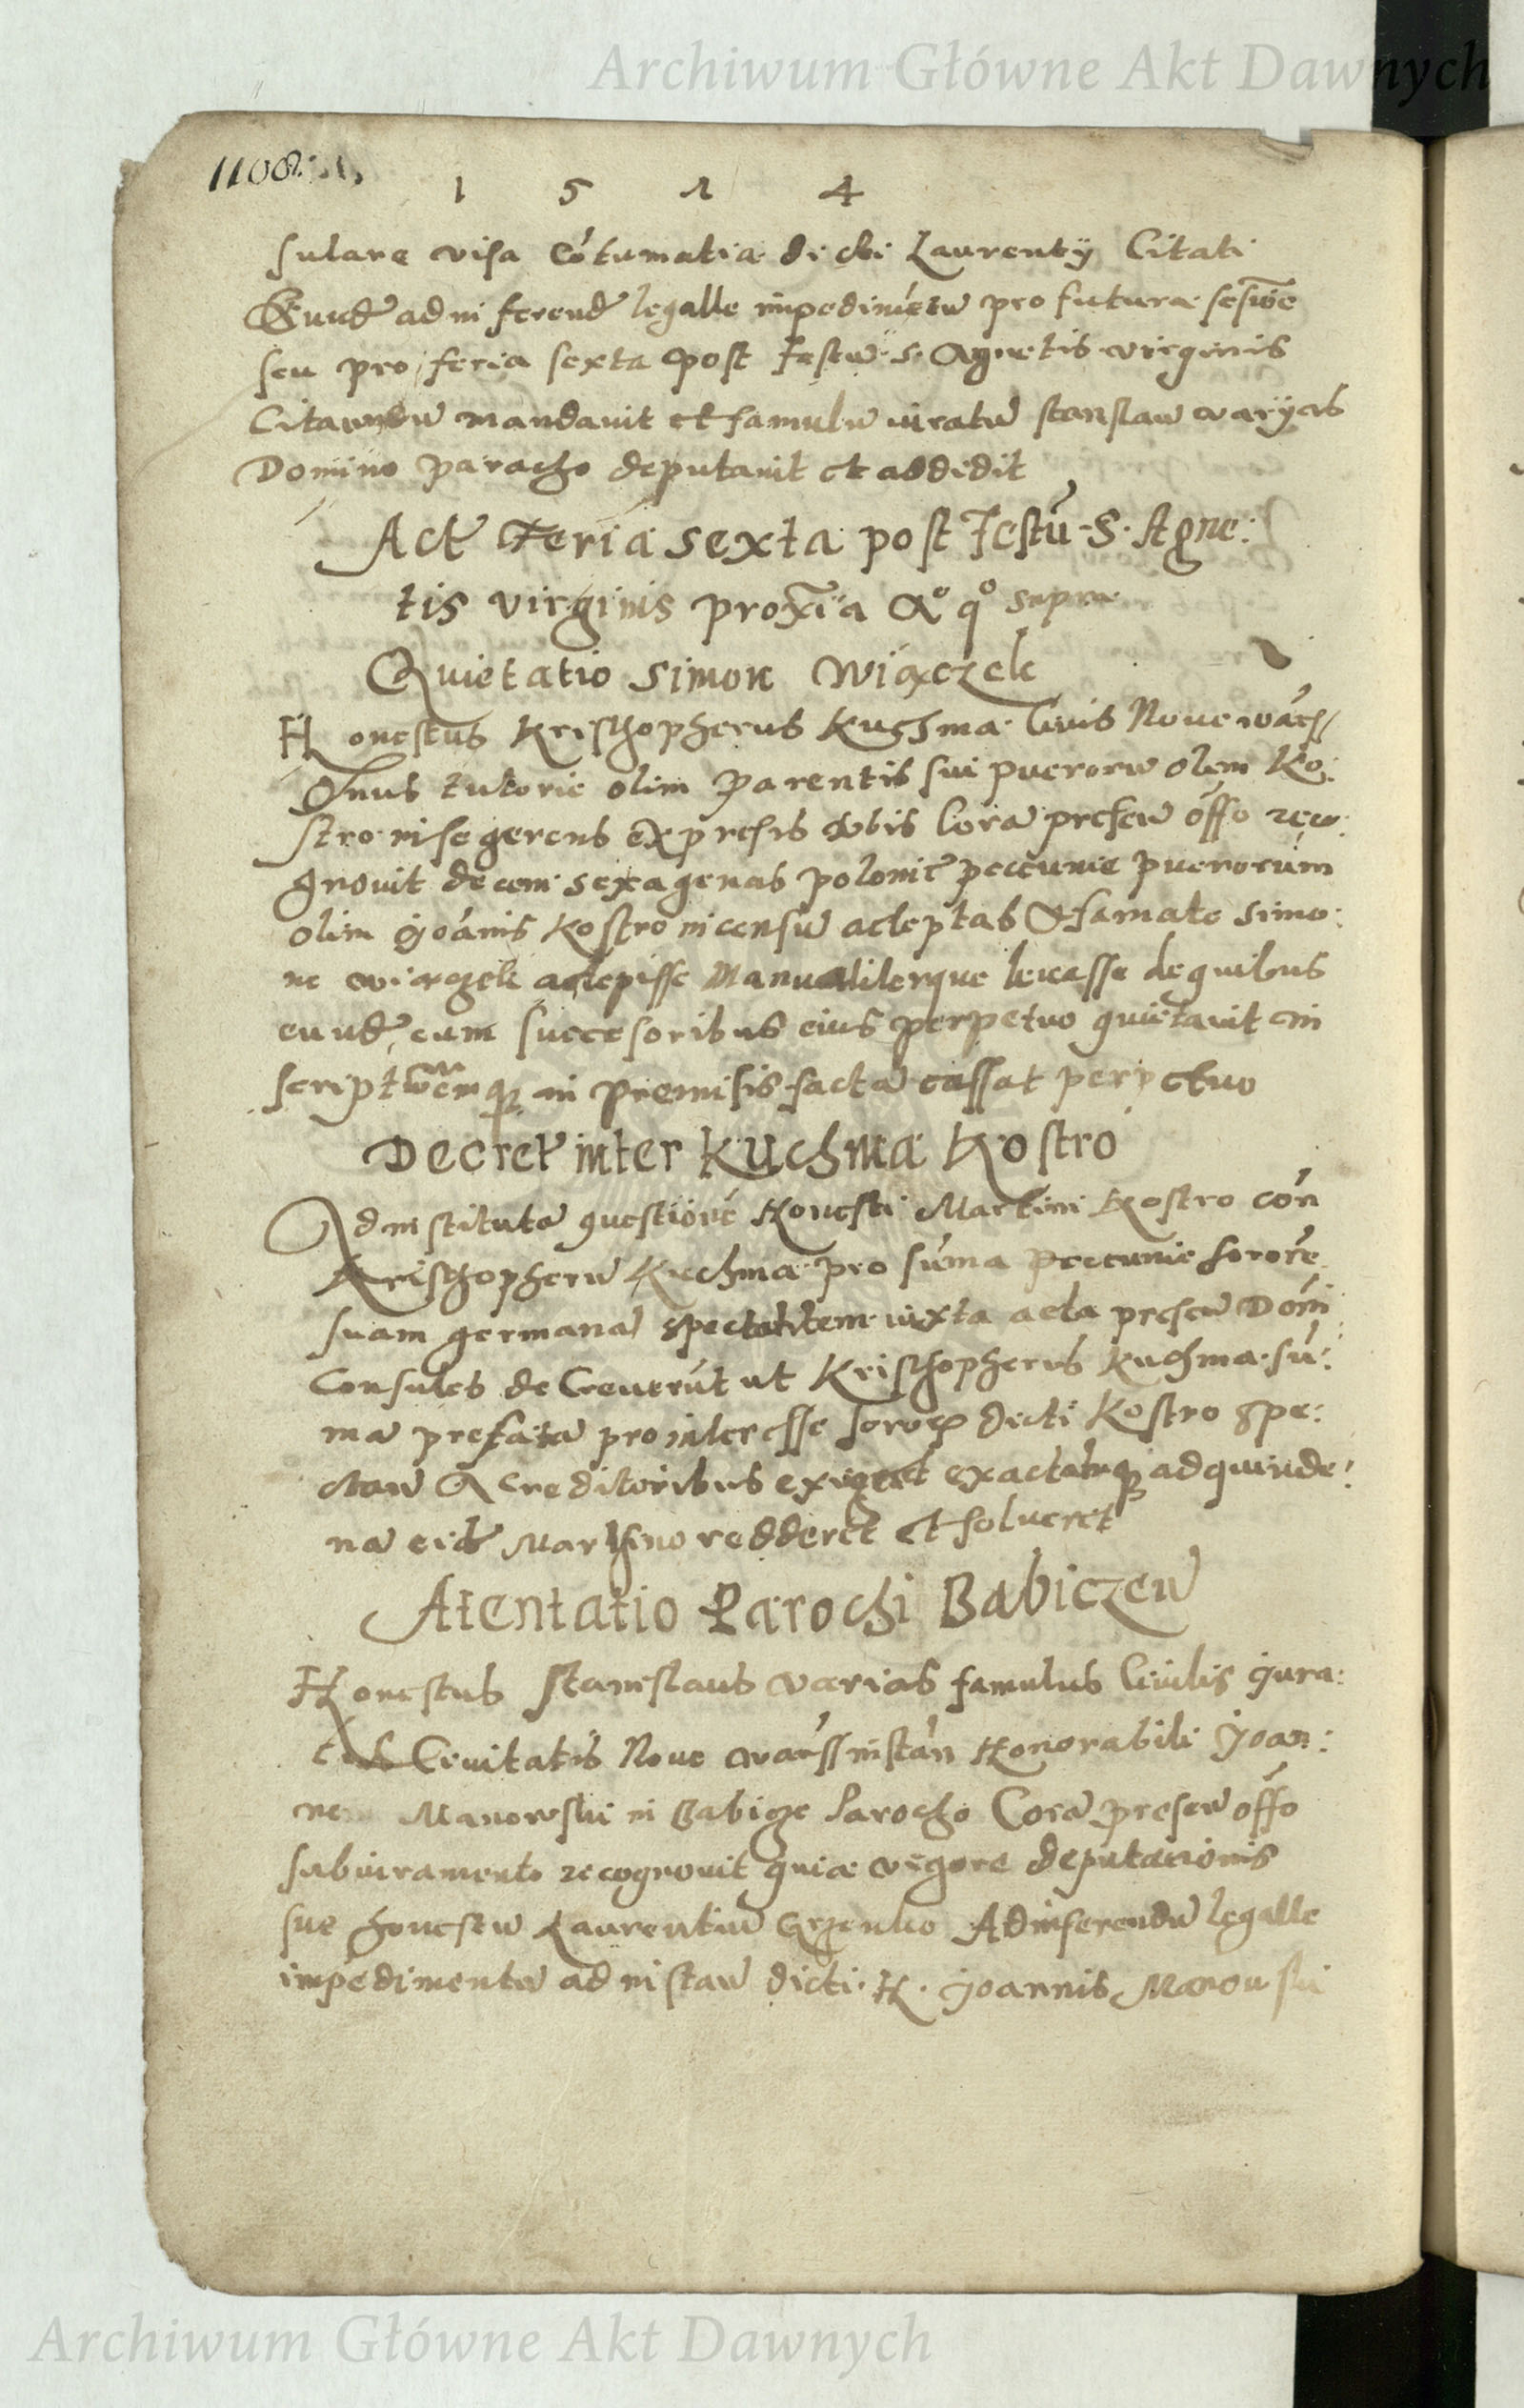 Archiwum Główne Akt Dawnych
1108
1 5 7 4
sulare visa Cotumatia dicti Laurentij Citati
Eund ad inferend legalle impedimētū pro futura sesiōe
seu pro feria sexta post festū S. Agnetis virginis
Citandū mandavit et famulū iuratū stanslaū varijas
Domino Parocho deputavit et addidit
Act Feria sexta post Festū S. Agne:
tis virginis proxīa Aº qº supra
Quietatio Simon Wiączek
Honestus Kristhopherus Kuchma Civis Nove warss
Onus tutorie olim Parentis sui puerorū olem Ko:
stro in se gerens expresis vbis Corā presen offo reco:
gnovit decem sexagenas polonic peccunie puerorum
olim Joānis Kostro in censū acceptas A famato Simo:
ne wiączek accepisse Manualiterque levasse de quibus
eund cum succesoribus eius perpetuo quietavit in
scriptōemq in premisis factā cassat perpetuo
Decret inter Kuchma Kostro
Ad institutā questiōē Honesti Martini Kostro cōn
Kristhopherū Kuchma pro sūma Peccunie sorore
suam germanā spectantem iuxta acta presen Domī
Consules de Creverūt ut Kristhopherus Kuchma sū:
mā prefatā pro interesse soror dicti Kostro spe:
ctan A creditoribus exigeret exactamq ad quinde:
nā eid Martino redderet et solveret
Atentatio Parochi Babiczen
Honestus Stanislaus varias famulus Civilis Jura:
tus Civitatis Nove warss instān Honorabili Joan:
ne Manowski in Babicze Parocho Corā presen offo
sub iuramento recognovit quia vigore deputationis
sue honestū Laurentiū Grzenko Ad inferendū legalle
impedimentū ad instan dicti H. Joannis Manowski
Archiwum Główne Akt Dawnych